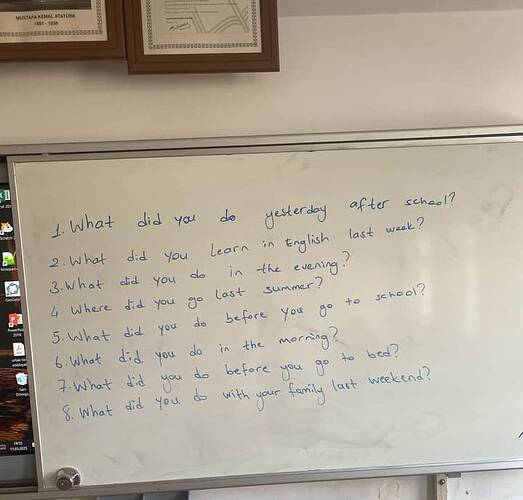 MUSTAFA KEMAL ATATÜRK
1881 - 1938
1. What did you do yesterday after school?
2. What did you Learn in English last week?
3. What did you do in the evening?
4 Where did you go Last summer?
5. What did you do before you go to school?
6. What did you do in the morning?
7. What did you do before you go to bed?
8. What did you do with your family last weekend?